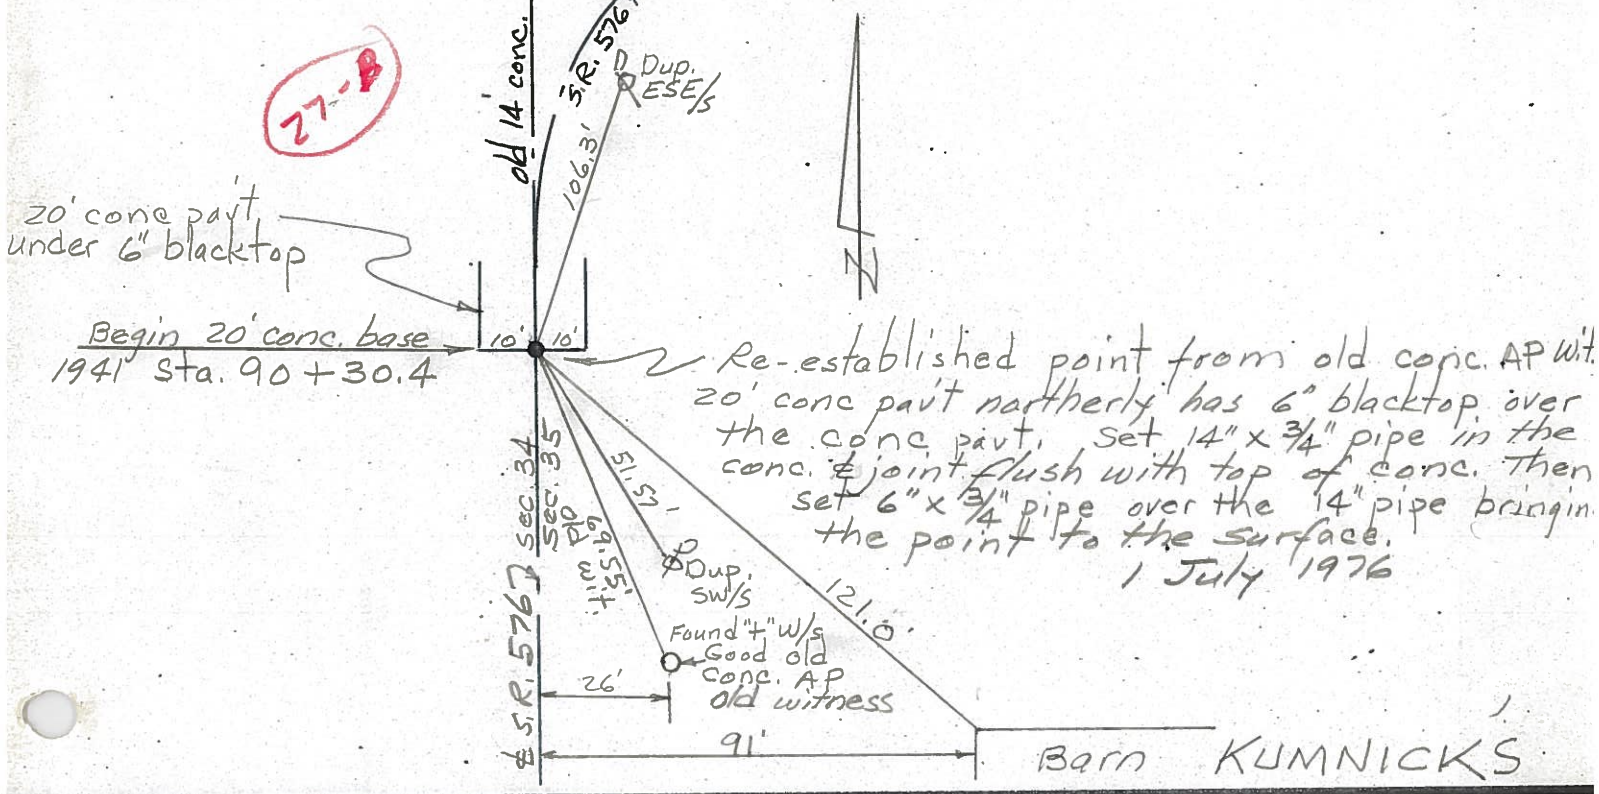 old 14' conc.
S.R. 576
27-B
Dup.
ESE/s
106.3'
20' conc pav't
under 6" blacktop
N
Begin 20' conc. base
1941 Sta. 90 + 30.4
10' 10'
Re-established point from old conc. AP wit
20' conc pav't northerly has 6" blacktop over
the conc pavt. Set 14" x 3/4" pipe in the
conc. ℄ joint flush with top of conc. Then
set 6" x 3/4" pipe over the 14" pipe bringin
the point to the surface.
1 July 1976
℄ S.R. 576
Sec. 34
Sec. 35
51.57'
old
69.55'
wit
Dup.
SW/s
121.0'
Found "+" W/s
Good old
Conc. AP
old witness
26'
91'
Barn KUMNICKS